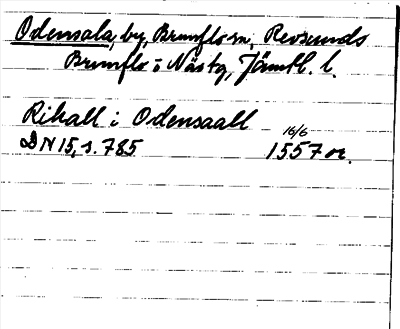 Odensala, by, Brunflo sn, Revsunds
Brunflo o Näs tg, Jämtl. l.
Rikall i Odensaall
16/6
DN 15, s. 785 1557 or.